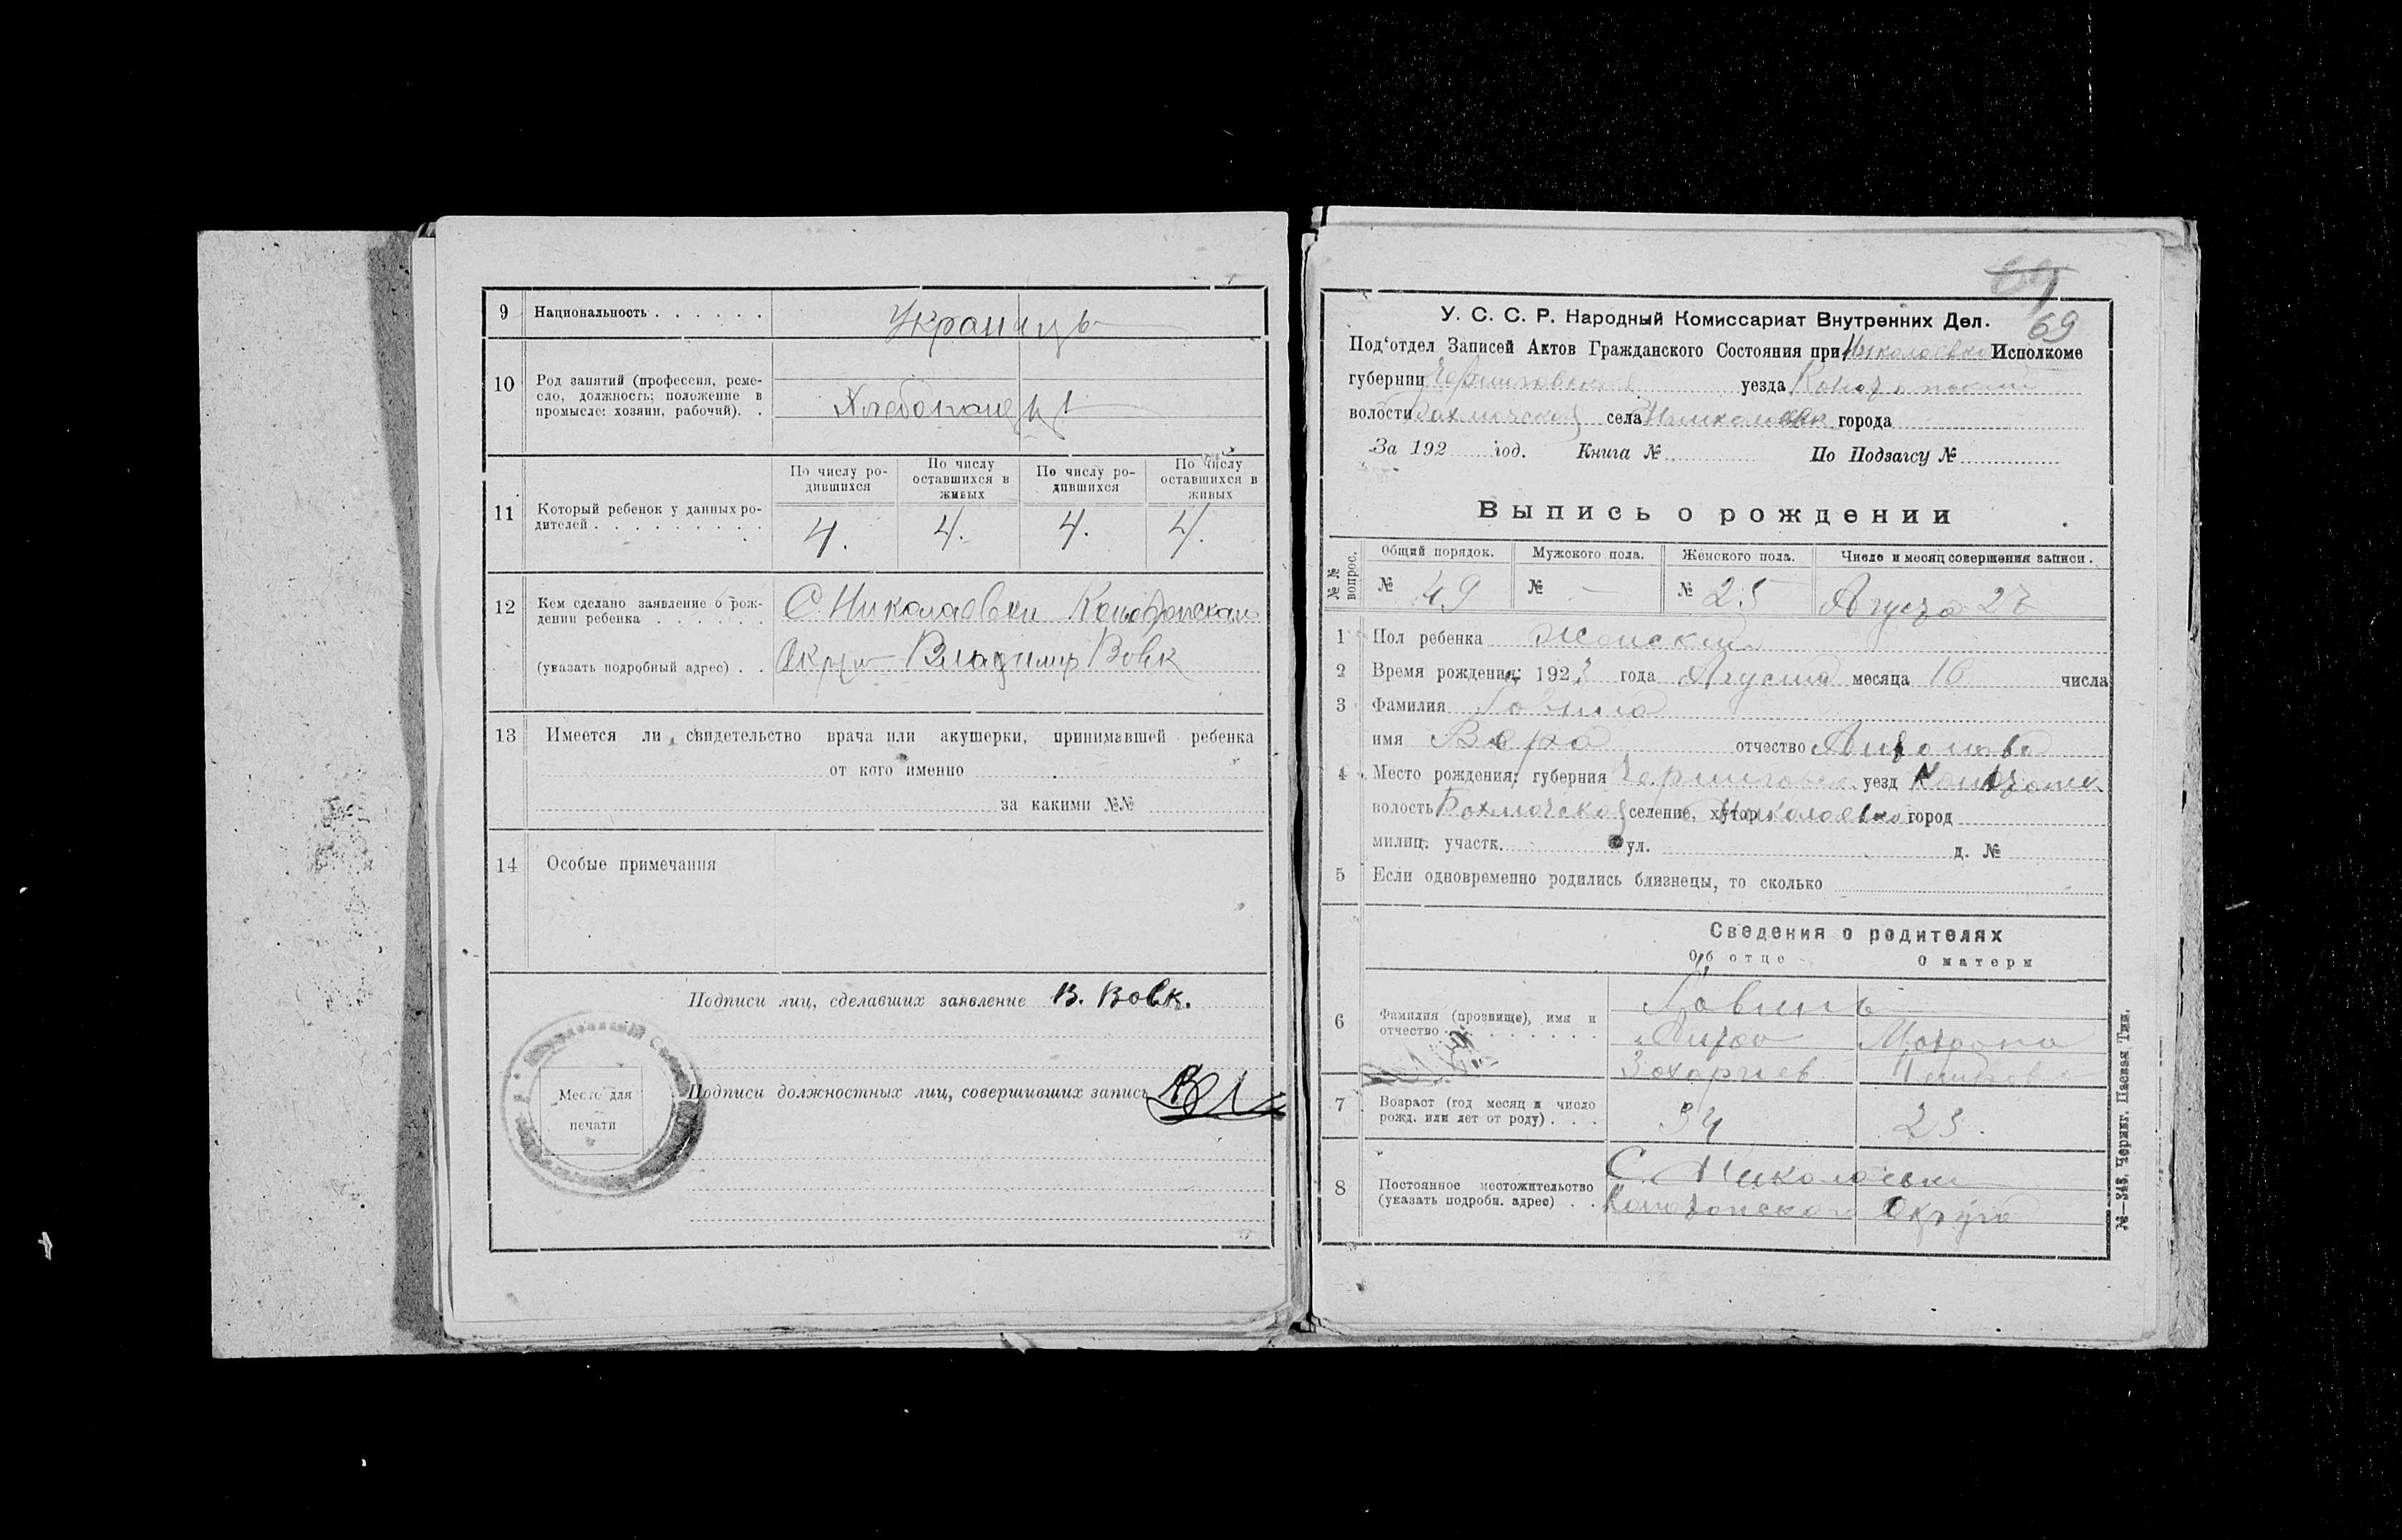 9 Национальность . . . . . . Украинцы
10 Род занятий (профессия, реме-
сло, должность; положение в
промысле: хозяин, рабочий). .
Хлебопашцы
По числу ро-
дившихся
По числу
оставшихся в
живых
По числу ро-
дившихся
По числу
оставшихся в
живых
11 Который ребенок у данных ро-
дителей . . . . . . . . .
4. 4. 4. 4.
12 Кем сделано заявление о рож-
дении ребенка . . . . . .
С. Николаевки
(указать подробный адрес) . . Владимир Вовк
13 Имеется ли свидетельство врача или акушерки, принимавшей ребенка
от кого именно
за какими №№
14 Особые примечания
Подписи лиц, сделавших заявление В. Вовк.
Подписи должностных лиц, совершивших запись
Место для
печати
69
У. С. С. Р. Народный Комиссариат Внутренних Дел.
Под‘отдел Записей Актов Гражданского Состояния при Исполкоме
губернии уезда Конотопский
волости Бахмачской села города
За 192 год. Книга № По Подзагсу №
Выпись о рождении
№№ вопрос.
Общий порядок. Мужского пола. Женского пола. Число и месяц совершения записи.
№ 49 № - № 25 Агуста 27
1 Пол ребенка Женский
2 Время рождения: 1923 года Агуста месяца 16 числа
3 Фамилия
имя Вера отчество
4 Место рождения: губерния уезд Конотопск
волость Бахмачской селение, хутор Николаевка город
милиц. участк. ул. д. №
5 Если одновременно родились близнецы, то сколько
Сведения о родителях
Об отце О матери
6 Фамилия (прозвище), имя и
отчество . . . . . . . .
7 Возраст (год месяц и число
рожд. или лет от роду) . . .
34 23.
8 Постоянное местожительство
(указать подробн. адрес) . .
С. Николаевки
Округа
№—343. Черниг. Паевая Тип.